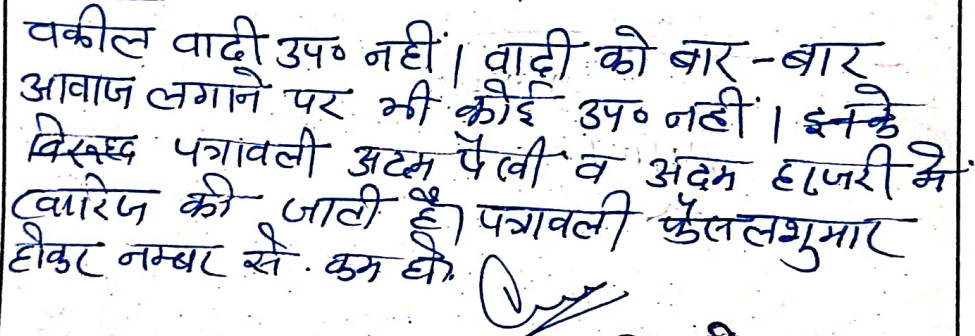 वकील वादी उप० नहीं। वादी को बार-बार
आवाज लगाने पर भी कोई उप० नहीं। इनके
विरुद्ध पत्रावली अदम पैरवी व अदम हाजरी में
खारिज की जाती है। पत्रावली फैसलशुमार
होकर नम्बर से कम हो।